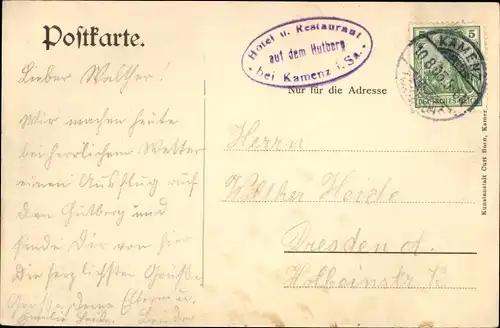 Postkarte.
Hotel u. Restaurant
auf dem Hutberg
bei Kamenz i. Sa.
5 5
KAMENZ
DEUTSCHES REICH
Nur für die Adresse
Lieber Walther!
Wir machen heute
bei herrlichem Wetter
einen Ausflug auf
den Hutberg und
sende Dir von hier
die herzlichsten Grüße
Deine Eltern u.
Herrn
Walther Heide
Dresden A.
Holbeinstr.
Kunstanstalt Curt Born, Kamenz